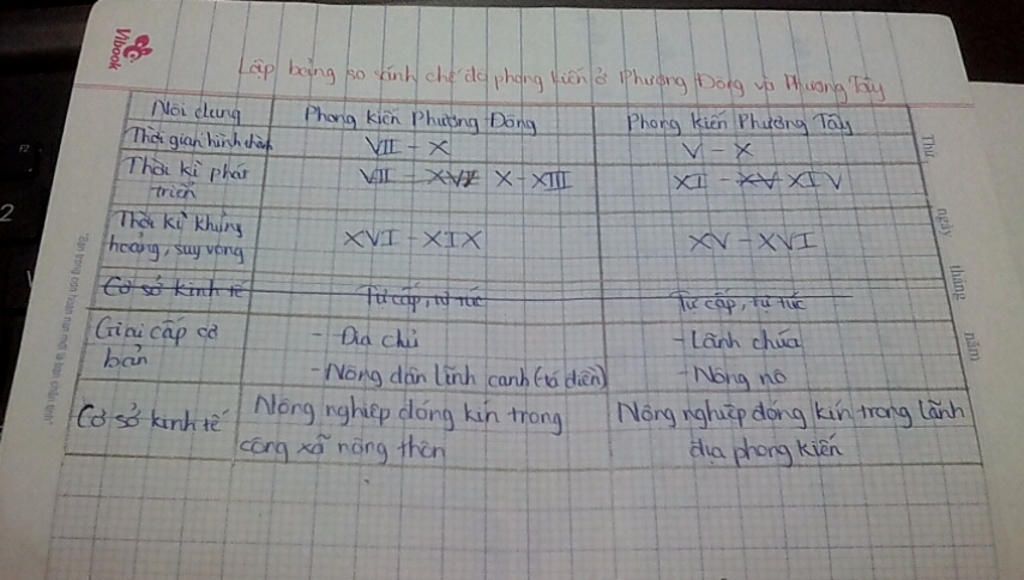 Vibook
Lập bảng so sánh chế độ phong kiến ở Phương Đông và Phương Tây
Nội dung Phong kiến Phương Đông Phong kiến Phương Tây
Thời gian hình thành VII - X V - X
Thời kì phát triển VII - XVI X - XIII XI - XV XIV
Thời kỳ khủng
hoảng, suy vong XVI - XIX XV - XVI
Cơ sở kinh tế Tự cấp, tự túc Tự cấp, tự túc
Giai cấp cơ - Địa chủ - Lãnh chúa
bản - Nông dân lĩnh canh (tá điền) - Nông nô
Cơ sở kinh tế Nông nghiệp đóng kín trong Nông nghiệp đóng kín trong lãnh
công xã nông thôn địa phong kiến
Thứ ngày tháng năm
F2
2